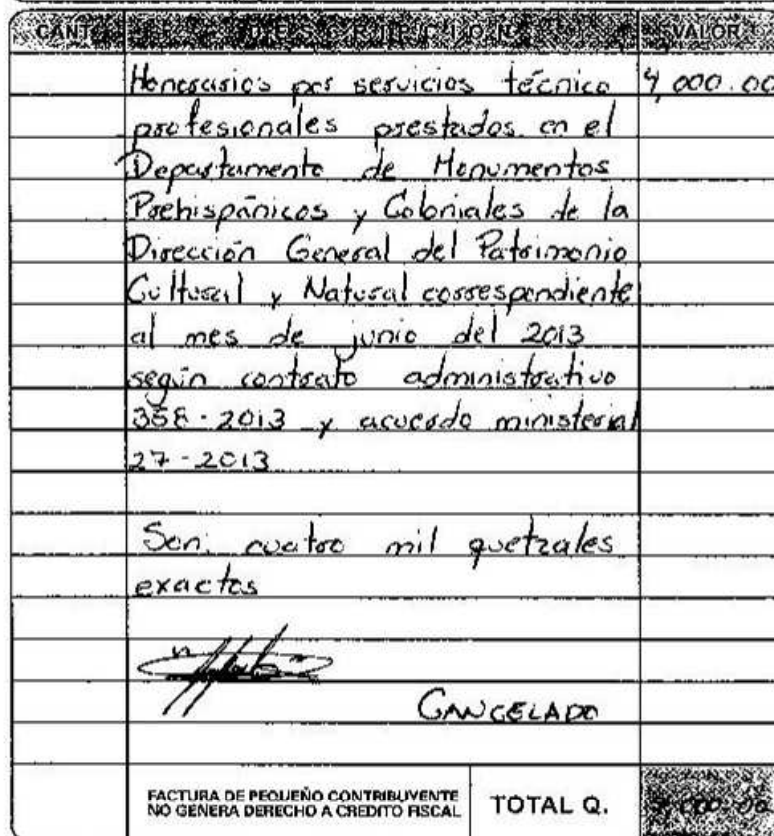 CANT. DESCRIPCION VALOR
Honorarios por servicios técnico 4,000.00
profesionales prestados en el
Departamento de Monumentos
Prehispánicos y Coloniales de la
Dirección General del Patrimonio
Cultural y Natural correspondiente
al mes de junio del 2013
según contrato administrativo
358-2013 y acuerdo ministerial
27-2013
Son: cuatro mil quetzales
exactos
CANCELADO
FACTURA DE PEQUEÑO CONTRIBUYENTE
NO GENERA DERECHO A CREDITO FISCAL
TOTAL Q. 4,000.00